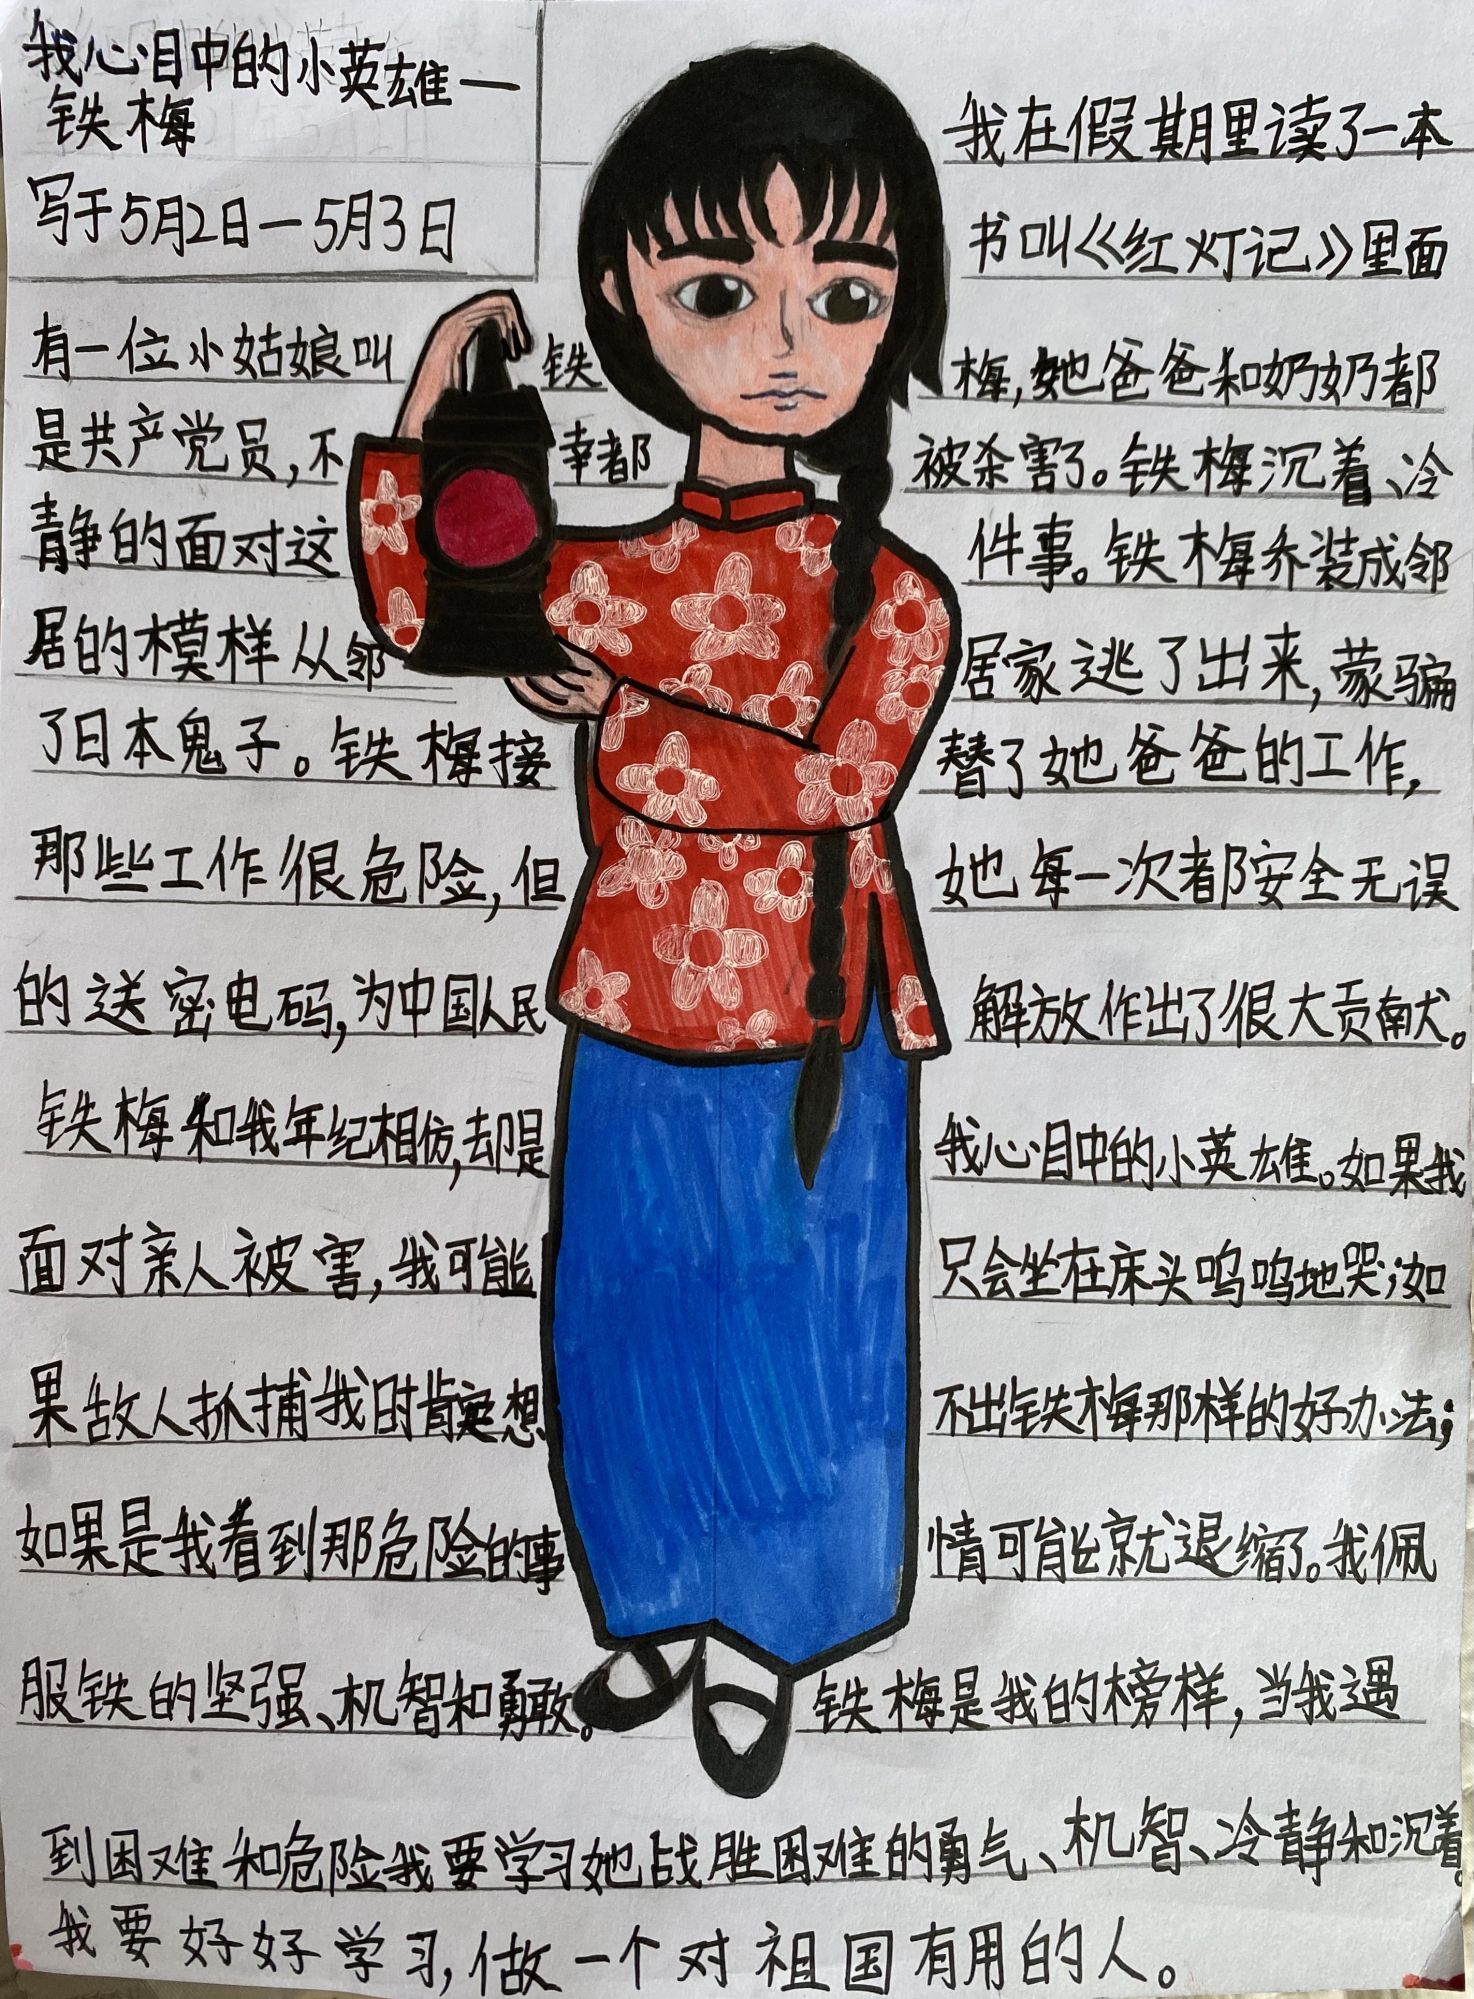 我心目中的小英雄一
铁梅
写于5月2日一5月3日
我在假期里读了一本
书叫《红灯记》里面
有一位小姑娘叫铁梅，她爸爸和奶奶都
是共产党员，不幸都被杀害了。铁梅沉着、冷
静的面对这件事。铁梅乔装成邻
居的模样从邻居家逃了出来，蒙骗
了日本鬼子。铁梅接替了她爸爸的工作，
那些工作很危险，但她每一次都安全无误
的送密电码，为中国人民解放作出了很大贡献。
铁梅和我年纪相仿，却是我心目中的小英雄。如果我
面对亲人被害，我可能只会坐在床头呜呜地哭；如
果敌人抓捕我时肯定想不出铁梅那样的好办法；
如果是我看到那危险的事情可能就退缩了。我佩
服铁的坚强、机智和勇敢。铁梅是我的榜样，当我遇
到困难和危险我要学习她战胜困难的勇气、机智、冷静和沉着。
我要好好学习，做一个对祖国有用的人。